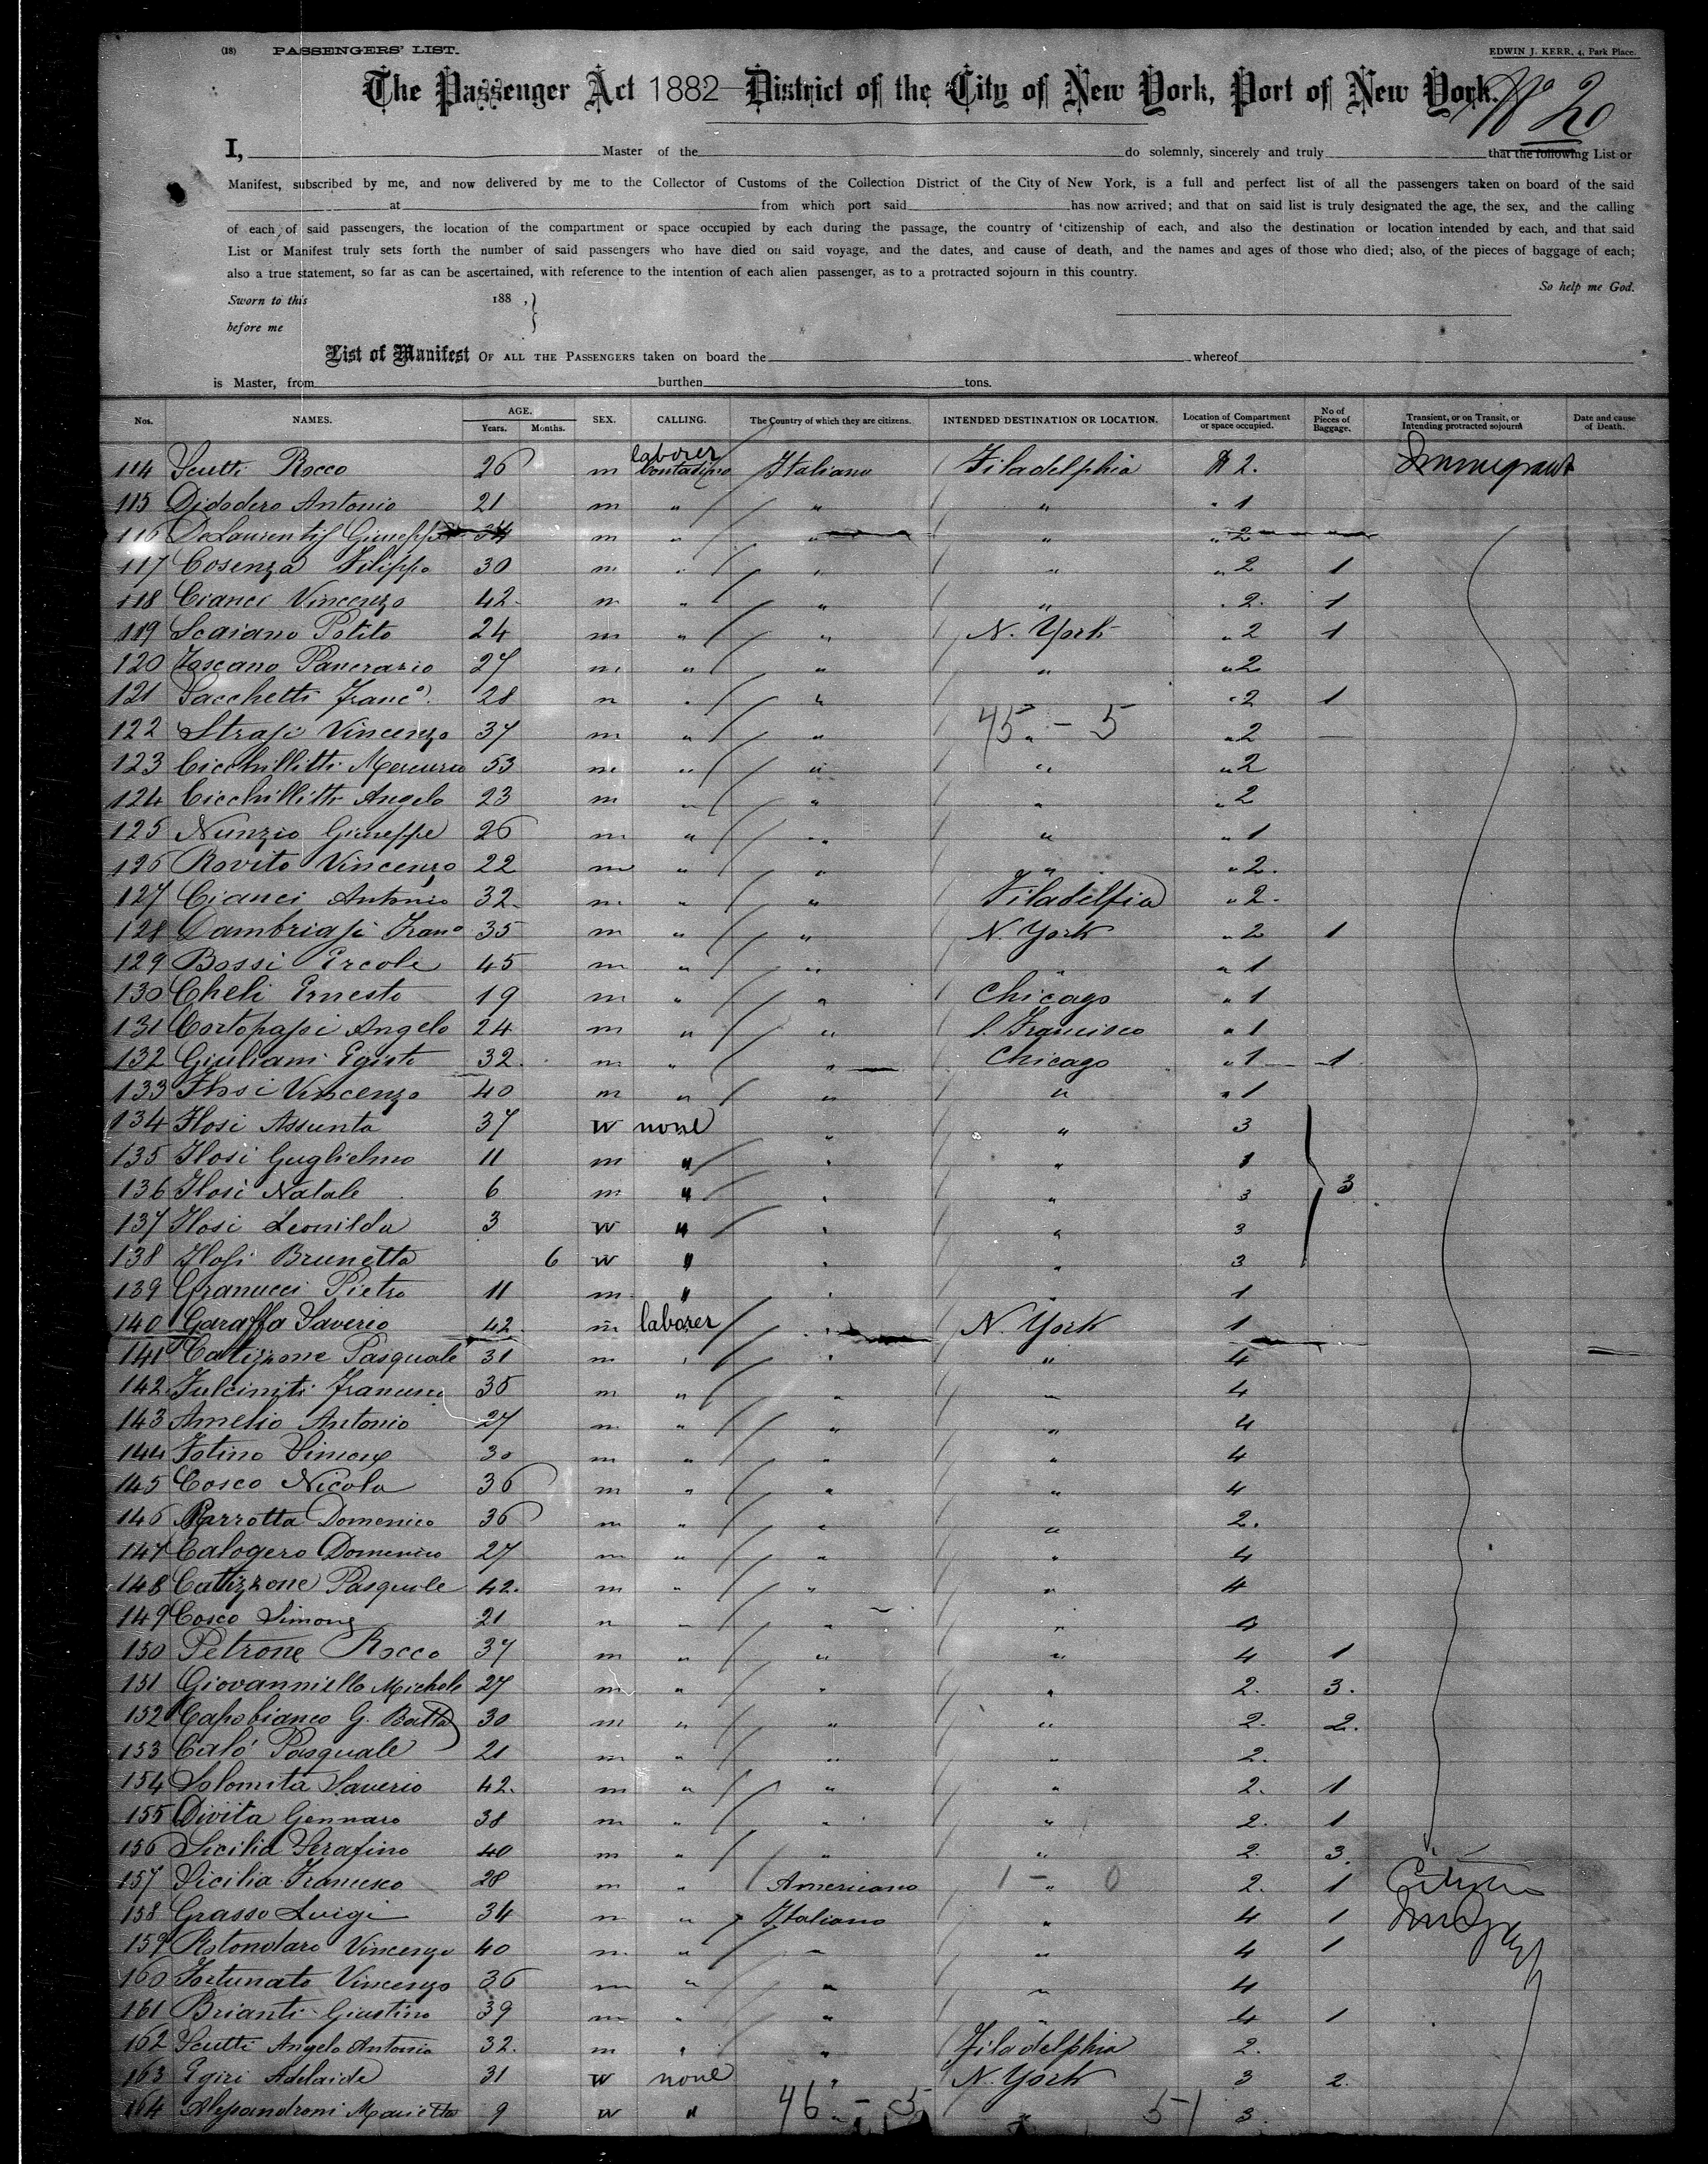 (18) PASSENGERS' LIST. EDWIN J. KERR, 4, Park Place.
The Passenger Act 1882 District of the City of New York, Port of New York.
No 20
I, Master of the do solemnly, sincerely and truly that the following List or
Manifest, subscribed by me, and now delivered by me to the Collector of Customs of the Collection District of the City of New York, is a full and perfect list of all the passengers taken on board of the said
at from which port said has now arrived; and that on said list is truly designated the age, the sex, and the calling
of each of said passengers, the location of the compartment or space occupied by each during the passage, the country of citizenship of each, and also the destination or location intended by each, and that said
List or Manifest truly sets forth the number of said passengers who have died on said voyage, and the dates, and cause of death, and the names and ages of those who died; also, of the pieces of baggage of each;
also a true statement, so far as can be ascertained, with reference to the intention of each alien passenger, as to a protracted sojourn in this country.
So help me God.
Sworn to this 188 , }
before me
List of Manifest OF ALL THE PASSENGERS taken on board the whereof
is Master, from burthen tons.
Nos. NAMES. AGE. Years. Months. SEX. CALLING. The Country of which they are citizens. INTENDED DESTINATION OR LOCATION. Location of Compartment or space occupied. No of Pieces of Baggage. Transient, or on Transit, or Intending protracted sojourn Date and cause of Death.
laborer
114 Scutti Rocco 26 m contadino Italiano Filadelphia 2. Immigrant
115 Didodero Antonio 21 m " " " " 1
116 DeLaurentis Giuseppe 34 m " " " " 2
117 Cosenza Filippo 30 m " " " " 2 1
118 Cianci Vincenzo 42 m " " " " 2. 1
119 Scaiano Potito 24 m " " N. York " 2 1
120 Toscano Pancrazio 27 m " " " " 2
121 Sacchetti Franco 28 m " " " 2 1
45 - 5
122 Strasi Vincenzo 37 m " " " " 2 —
123 Cicchillitti Mercurio 53 m " " " " 2
124 Cicchillitti Angelo 23 m " " " " 2
125 Nunzio Giuseppe 26 m " " " " 1
126 Rovito Vincenzo 22 m " " " " 2.
127 Cianci Antonio 32. m " " Filadelfia " 2.
128 Dambriasi Frano 35 m " " N. York " 2 1
129 Bossi Ercole 45 m " " " " 1
130 Cheli Ernesto 19 m " " Chicago " 1
131 Cortopassi Angelo 24 m " " S. Francisco " 1
132 Giuliani Egisto 32. m " " Chicago " 1 1
133 Flosi Vincenzo 40 m " " " " 1
134 Flosi Assunta 37 w none " " 3
135 Flosi Guglielmo 11 m " " " 1
136 Flosi Natale 6 m " " " 3 3
137 Flosi Leonilda 3 w " " " 3
138 Flosi Brunetta 6 w " " " 3
139 Granucci Pietro 11 m " " " 1
140 Garaffa Saverio 42. m laborer " N. York 1
141 Catizzone Pasquale 31 m " " " 4
142 Fulciniti Francesco 35 m " " " 4
143 Amelio Antonio 27 m " " " 4
144 Fotino Simone 30 m " " " 4
145 Cosco Nicola 36 m " " " 4
146 Marrotta Domenico 36 m " " " 2.
147 Calogero Domenico 27 m " " " 4
148 Catizzone Pasquale 42. m " " " 4
149 Cosco Simone 21 m " " " 4
150 Petrone Rocco 37 m " " " 4 1
151 Giovanniello Michele 27 m " " " 2. 3.
152 Capobianco G. Batta 30 m " " " 2. 2.
153 Caló Pasquale 21 m " " " 2.
154 Solomita Saverio 42. m " " " 2. 1
155 Divita Gennaro 38 m " " " 2. 1
156 Sicilia Serafino 40 m " " " 2. 3.
157 Sicilia Francesco 28 m " Americano 1 - " 0 2. 1 Citizen
158 Grasso Luigi 34 m " Italiano " 4 1
159 Rotondaro Vincenzo 40 m " " " 4 1
160 Fortunato Vincenzo 36 m " " " 4
161 Brianti Giustino 39 m " " " 4 1
162 Scutti Angelo Antonio 32. m " " Filadelphia 2.
163 Egizi Adelaide 31 w none " N. York 3 2.
164 Alessandroni Marietta 9 w " " " 3.
46 - 5 51